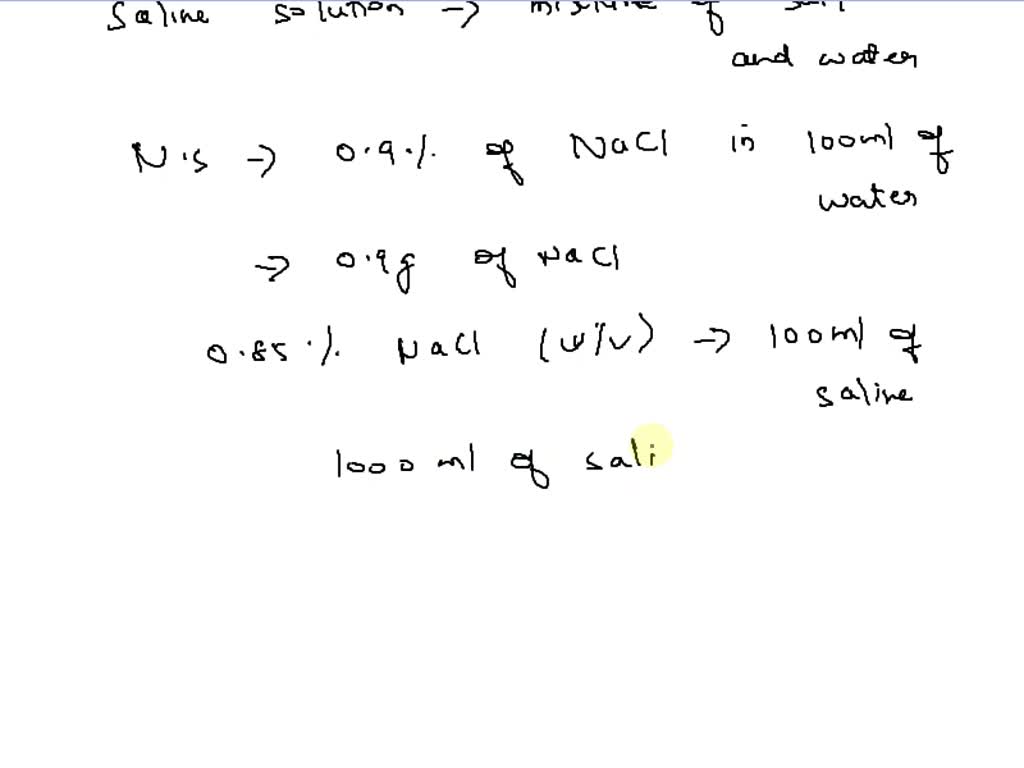 Saline solution → mixture of salt
and water
N.S → 0.9% of NaCl in 100ml of
water
→ 0.9g of NaCl
0.85% NaCl (w/v) → 100ml of
saline
1000 ml of sali